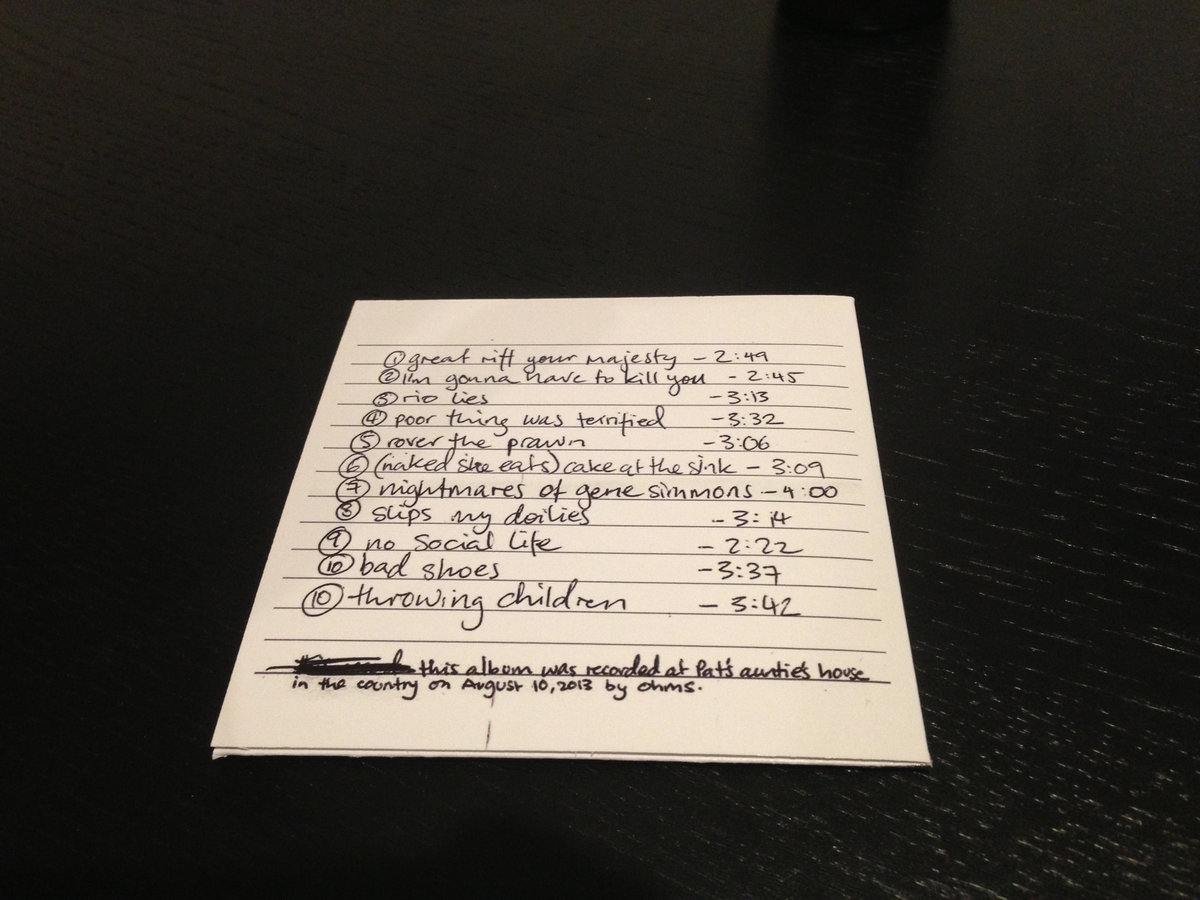 ① great riff your majesty - 2:49
② I'm gonna have to kill you - 2:45
③ rio lies - 3:13
④ poor thing was terrified - 3:32
⑤ rover the prawn - 3:06
⑥ (naked she eats) cake at the sink - 3:09
⑦ nightmares of gene simmons - 4:00
⑧ slips my doilies - 3:14
⑨ no social life - 2:22
⑩ bad shoes - 3:37
⑩ throwing children - 3:42
this album was recorded at Pat's auntie's house
in the country on August 10, 2013 by ohms.